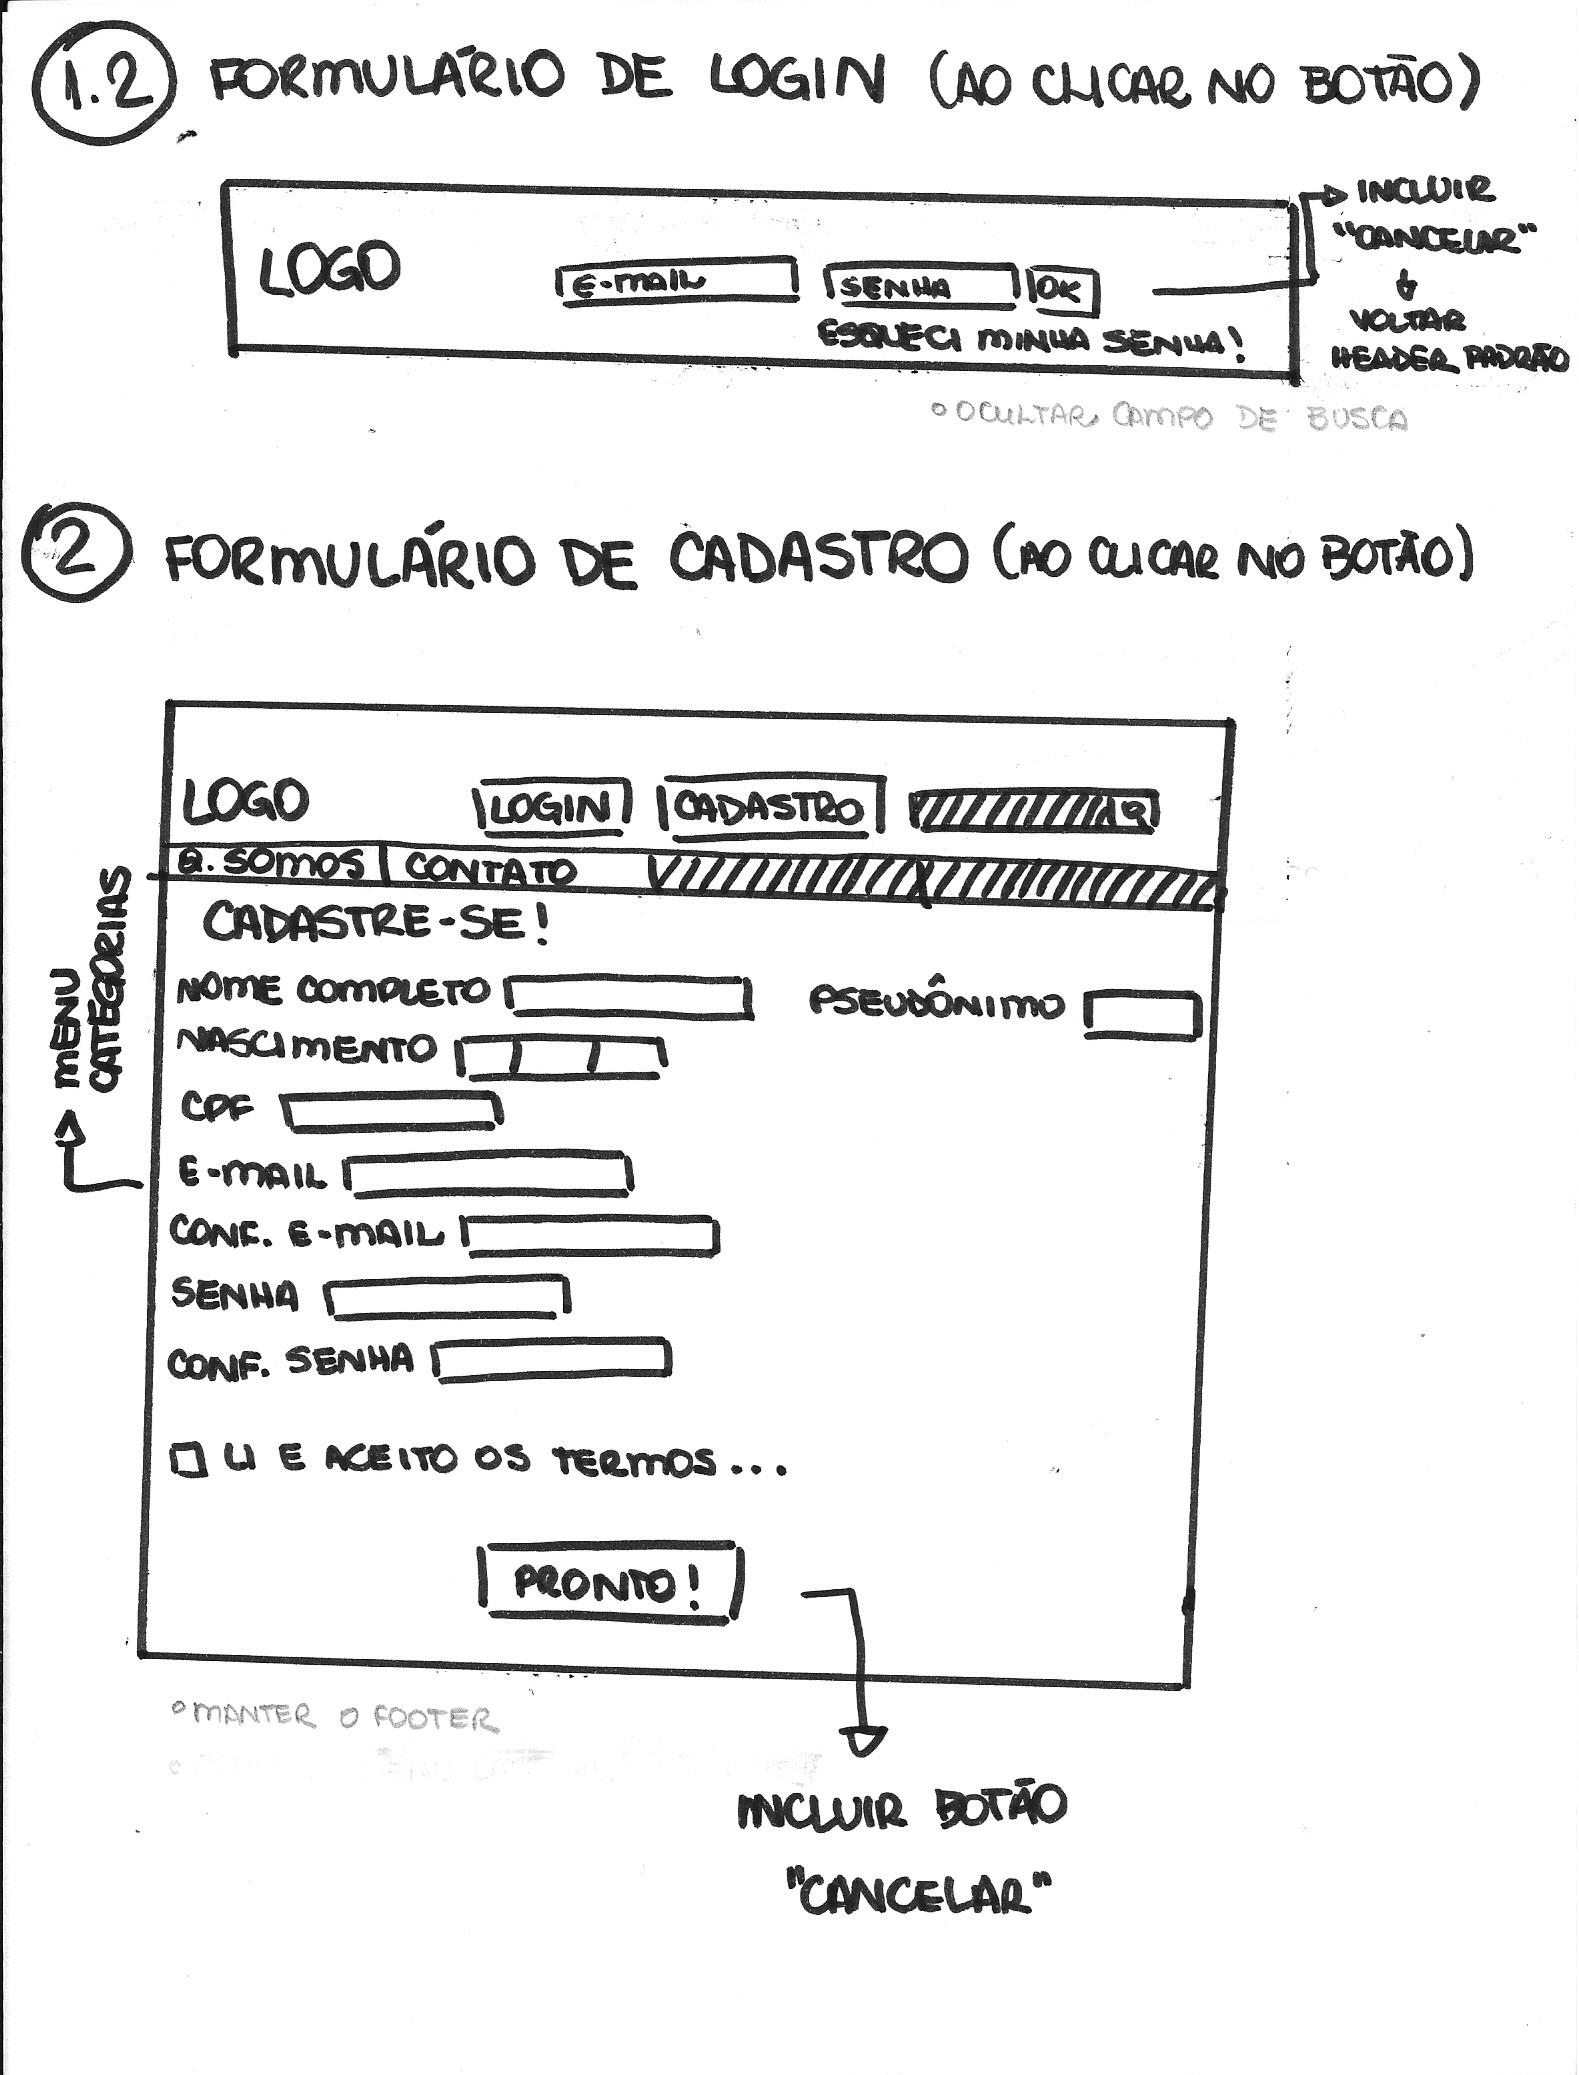 1.2 FORMULÁRIO DE LOGIN (AO CLICAR NO BOTÃO)
LOGO
E-MAIL
SENHA
OK
ESQUECI MINHA SENHA!
INCLUIR
"CANCELAR"
VOLTAR
HEADER PADRÃO
OCULTAR CAMPO DE BUSCA
2 FORMULÁRIO DE CADASTRO (AO CLICAR NO BOTÃO)
LOGO
LOGIN
CADASTRO
Q. SOMOS
CONTATO
MENU
CATEGORIAS
CADASTRE-SE!
NOME COMPLETO
PSEUDÔNIMO
NASCIMENTO
CPF
E-MAIL
CONF. E-MAIL
SENHA
CONF. SENHA
LI E ACEITO OS TERMOS...
PRONTO!
MANTER O FOOTER
INCLUIR BOTÃO
"CANCELAR"